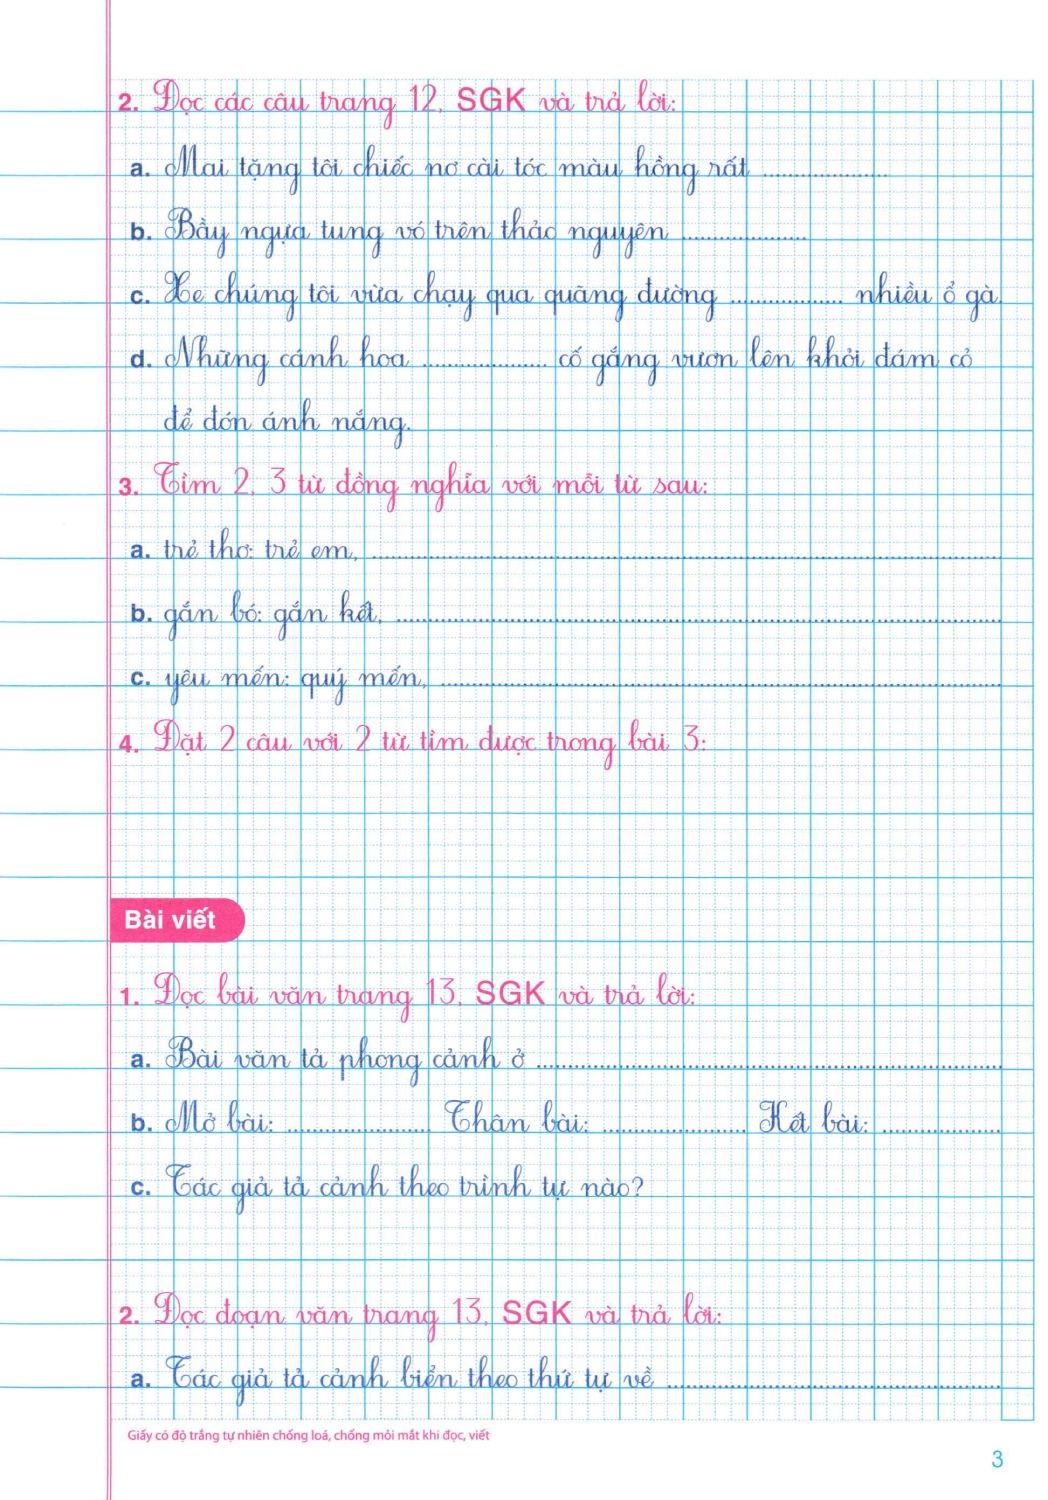 2. Đọc các câu trang 12, SGK và trả lời:
a. Mai tặng tôi chiếc nơ cài tóc màu hồng rất ....................
b. Bầy ngựa tung vó trên thảo nguyên ....................
c. Xe chúng tôi vừa chạy qua quãng đường .................. nhiều ổ gà.
d. Những cánh hoa .................... cố gắng vươn lên khỏi đám cỏ
để đón ánh nắng.
3. Tìm 2, 3 từ đồng nghĩa với mỗi từ sau:
a. trẻ thơ: trẻ em, ....................
b. gắn bó: gắn kết, ....................
c. yêu mến: quý mến, ....................
4. Đặt 2 câu với 2 từ tìm được trong bài 3:
Bài viết
1. Đọc bài văn trang 13, SGK và trả lời:
a. Bài văn tả phong cảnh ở ....................
b. Mở bài: .................... Thân bài: .................... Kết bài: ....................
c. Tác giả tả cảnh theo trình tự nào?
2. Đọc đoạn văn trang 13, SGK và trả lời:
a. Tác giả tả cảnh biển theo thứ tự về ....................
Giấy có độ trắng tự nhiên chống loá, chống mỏi mắt khi đọc, viết
3